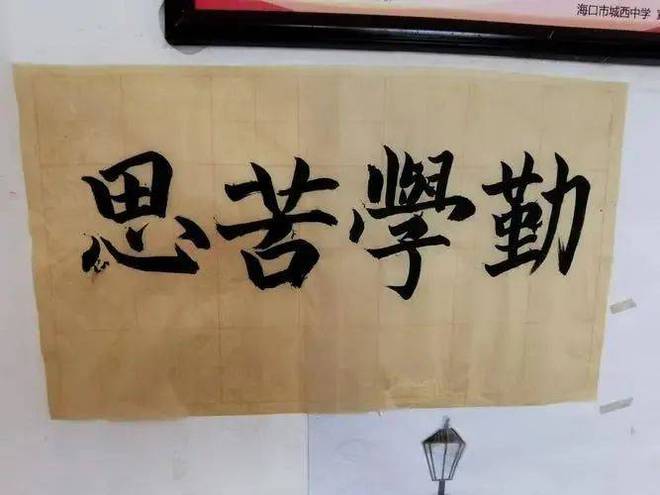 海口市城西中学
勤學苦思